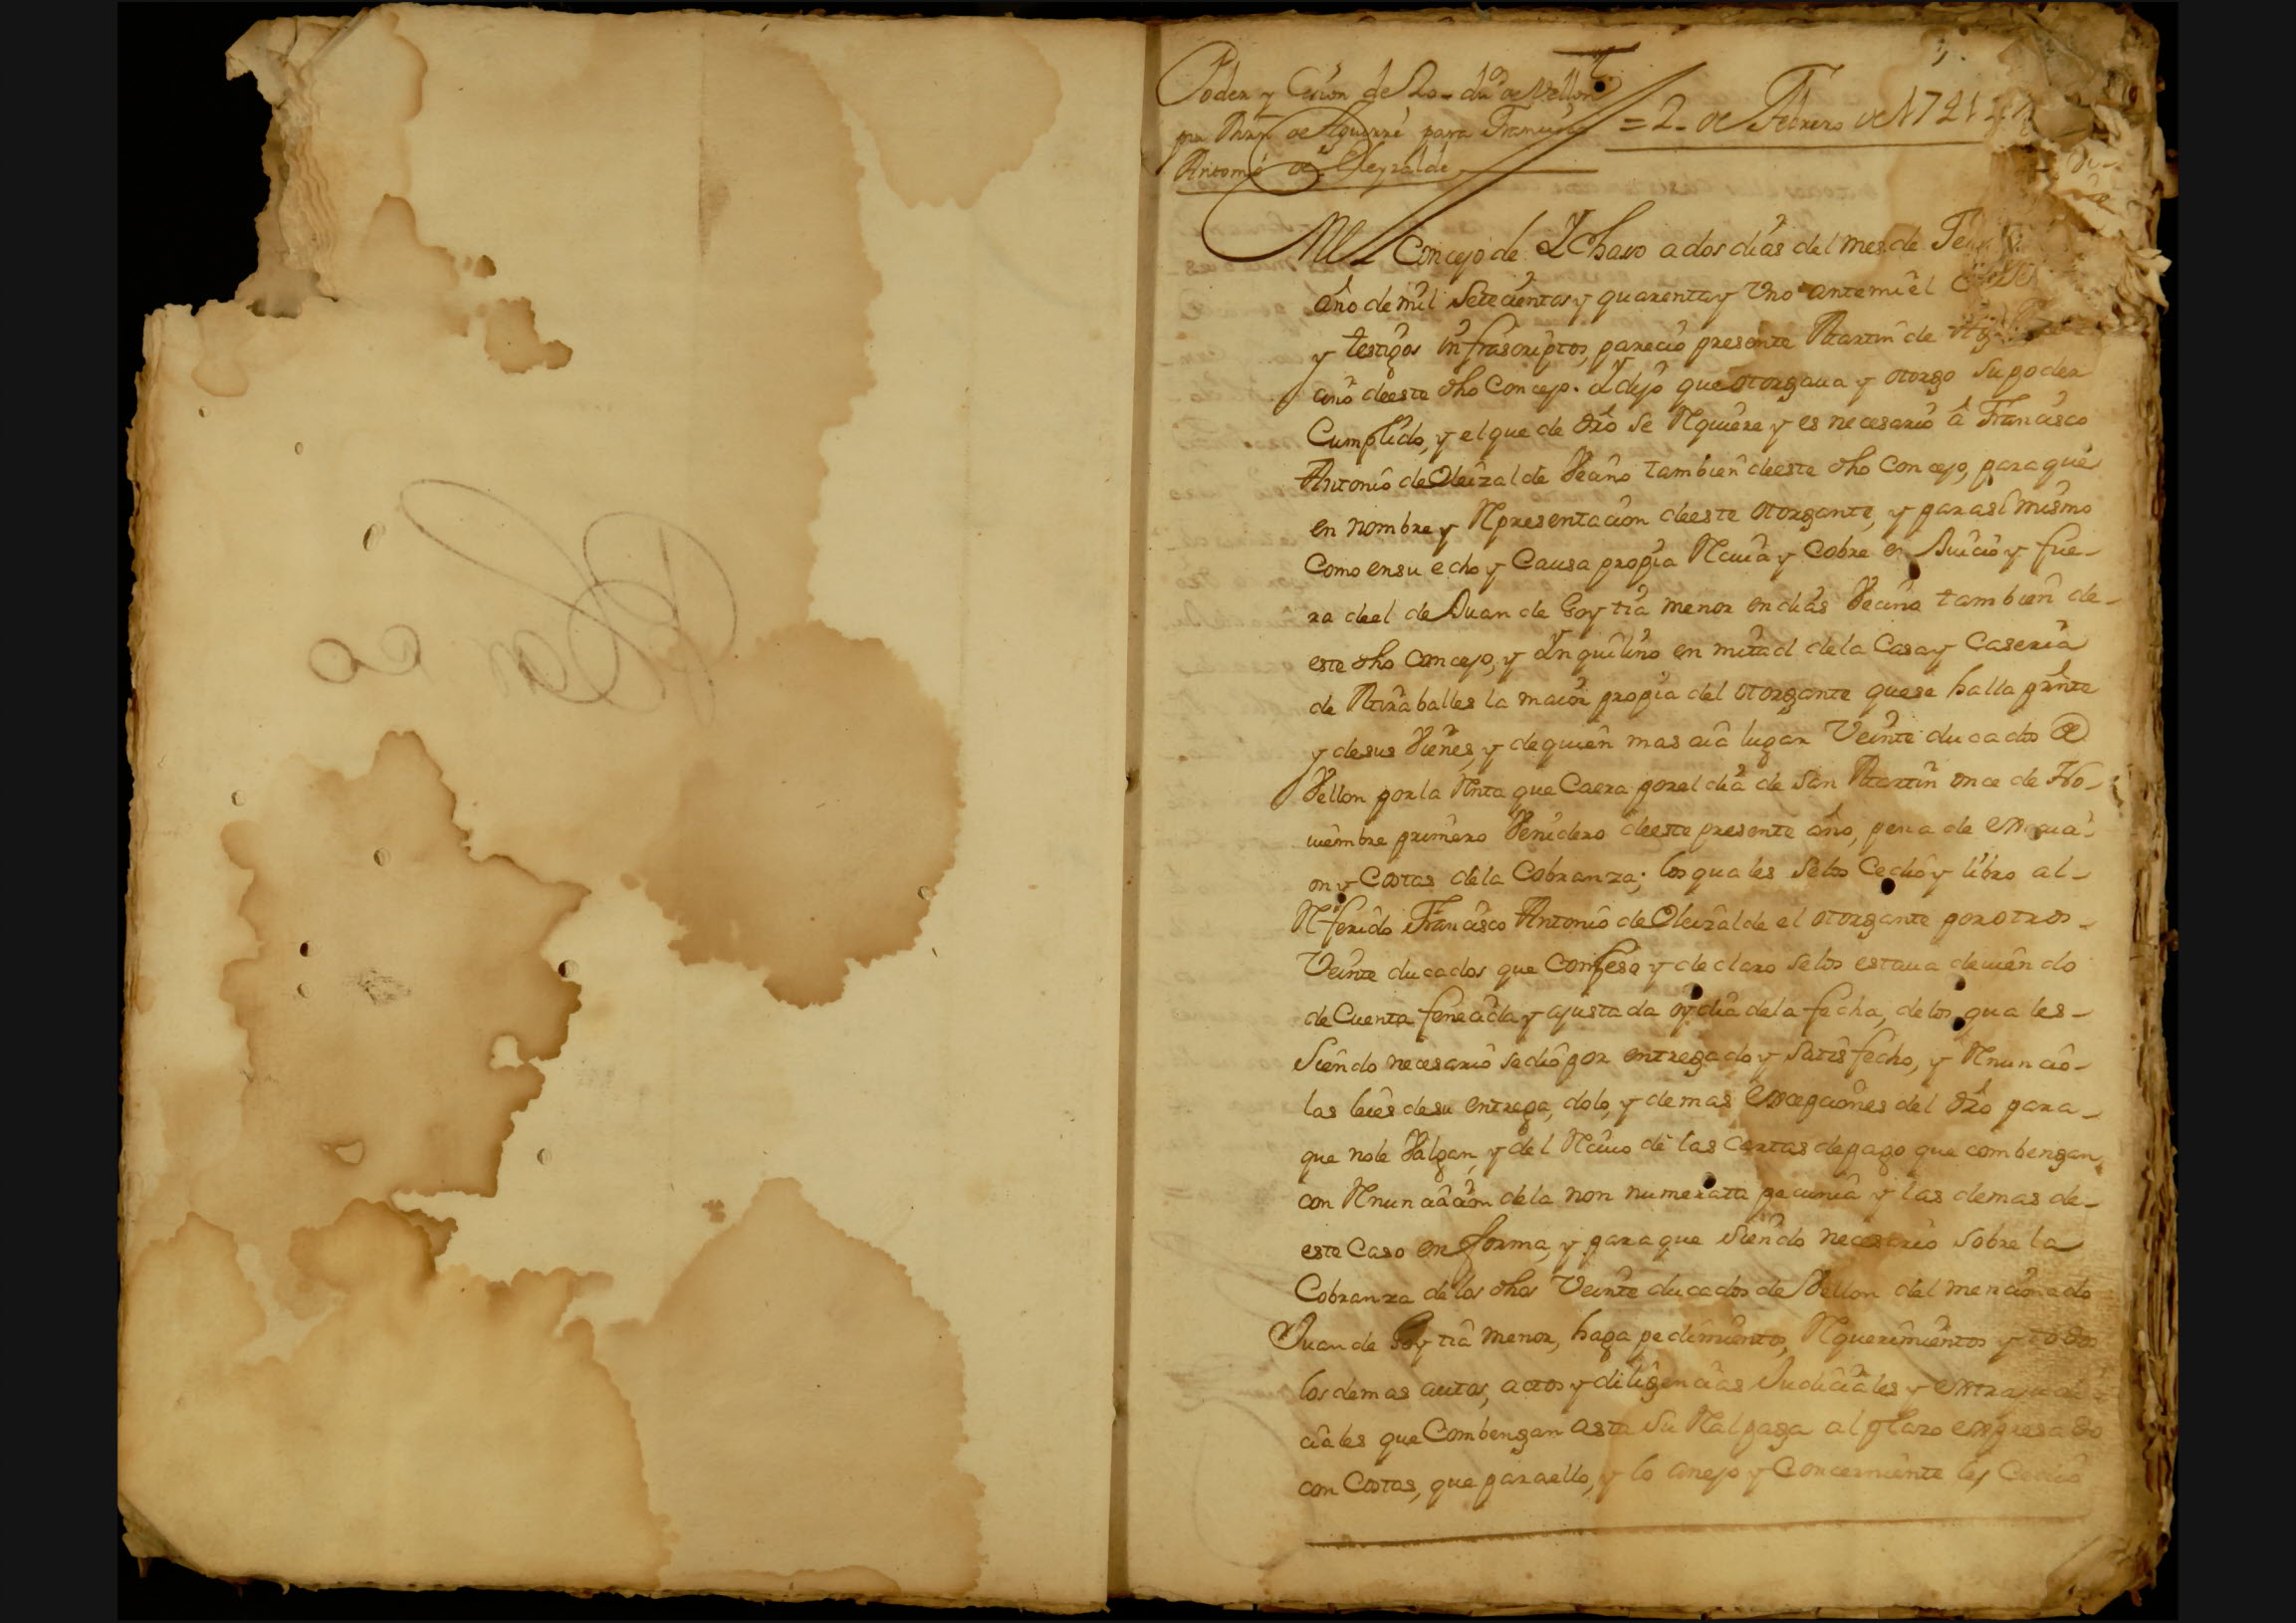 Poder y Cesion de 20 duos de Vellon
por Mrn de Aguirre para Francisco
Antonio de Oleyzalde
= 2 de Febrero de 1741
En el Concejo de Ychaso a dos dias del mes de
año de mil Setecientos y quarenta y Vno ante mi el
y testigos infrascriptos, parecio presente Martin de
cino deeste dho Concejo. Y dijo que otorgaua y otorgo Su poder
Cumplido, y el que de dro se Requiere y es necesario â Francisco
Antonio de Oleizalde Vecino tambien deeste dho Concejo, para que
en nombre y Representacion deeste otorgante, y para si mismo
Como en su echo y Causa propia Reciua y Cobre en Juicio y fue-
ra deel de Juan de Goytia menor en dias Vecino tambien de-
este dho Concejo, y Ynquilino en mitad dela Casa y Caseria
de Miraballes la maior propia del otorgante que se halla prnte
y desus Vienes, y de quien mas aia lugar Veinte ducados de
Vellon por la Renta que Caera por el dia de San Martin once de No-
uiembre primero Venidero deeste presente año, pena de
on y Costas dela Cobranza; los quales Selos Cedio y libro al-
Referido Francisco Antonio de Oleizalde el otorgante por otros-
Veinte ducados que Confeso y declaro selos estaua deuiendo
de Cuenta fenecida y ajustada oy dia dela fecha, delos quales-
Siendo necesario sedio por entregado y Satisfecho, y Renuncio-
las leies desu entrega, dolo, y demas excepciones del dro para-
que nole Valgan, y del Reciuo de las Cartas depago que combengan
con Renunciacion dela non numerata pecunia y las demas de-
este Caso en forma, y para que Siendo necesario Sobre la
Cobranza de los dhos Veinte ducados de Vellon del mencionado
Juan de Goytia menor, haga pedimientos, Requerimientos y todos
los demas autos, actos y diligencias Judiciales y extrajudi-
ciales que Combengan asta Su Real paga al plazo expresado
con Costas, que para ello, y lo anejo y Concerniente le Cedio